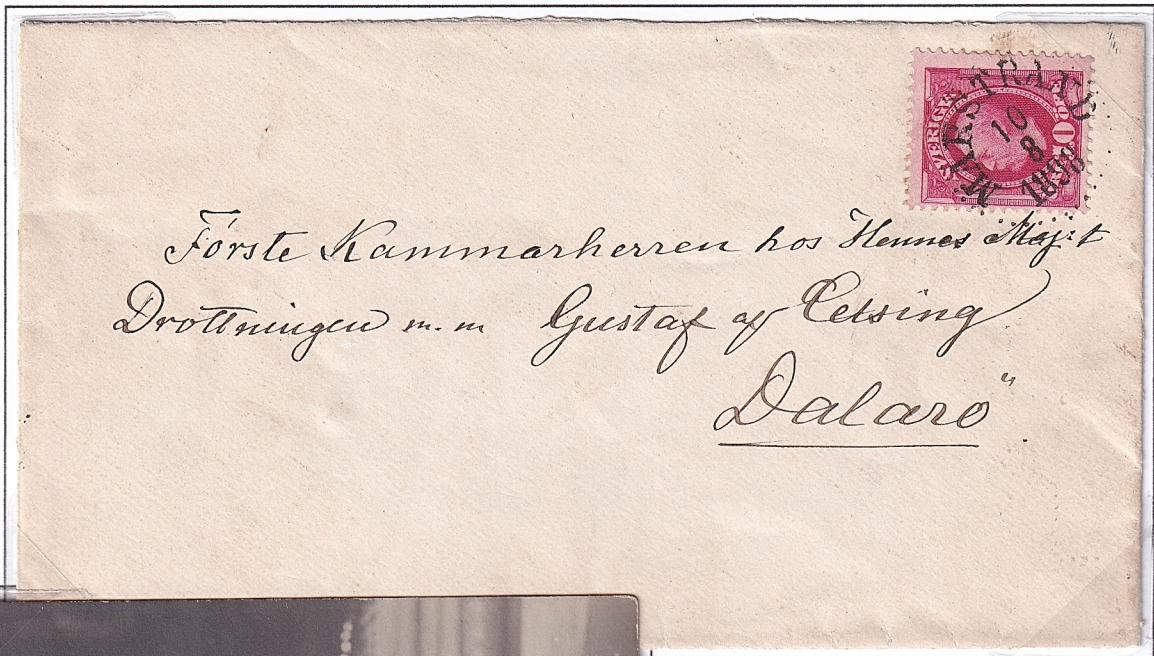 SVERIGE
MARSTRAND
10
8
1898
Förste Kammarherren hos Hennes Maj:t
Drottningen m.m Gustaf af Celsing
Dalarö